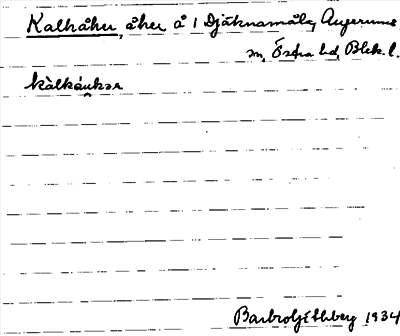 Kalkåker, åker å 1 Djäknamåla, Augerums
sn, Östra hd, Blek. l.
kàlkáukər
Barbro Ljithberg 1934